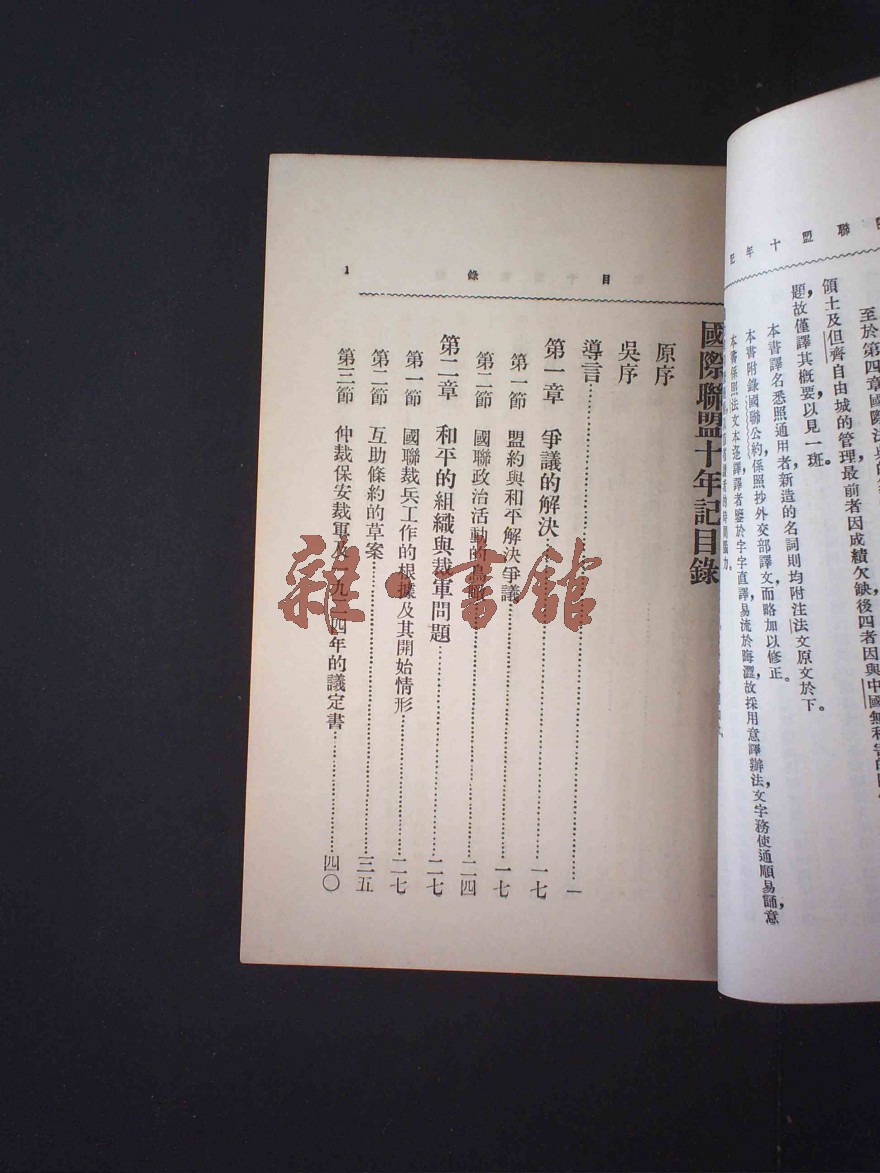 至於第四章國際法典的
領土及但齊自由城的管理最前者因成績欠缺後四者因與中國無利害的關
題,故僅譯其概要,以見一班。
本書譯名悉照通用者,新造的名詞則均附注法文原文於下。
本書附錄國聯公約,係照抄外交部譯文,而略加以修正。
本書係照法文本迻譯,譯者鑒於字字直譯,易流於晦澀,故採用意譯辦法,文字務使通順易誦,意
聯盟十年記
目錄
1
國際聯盟十年記目錄
原序
吳序
導言……一
第一章 爭議的解決……一七
第一節 盟約與和平解決爭議……一七
第二節 國聯政治活動的鳥瞰……二四
第二章 和平的組織與裁軍問題……二七
第一節 國聯裁兵工作的根據及其開始情形……二七
第二節 互助條約的草案……三五
第三節 仲裁保安裁軍及一九二四年的議定書……四〇
雜·書館